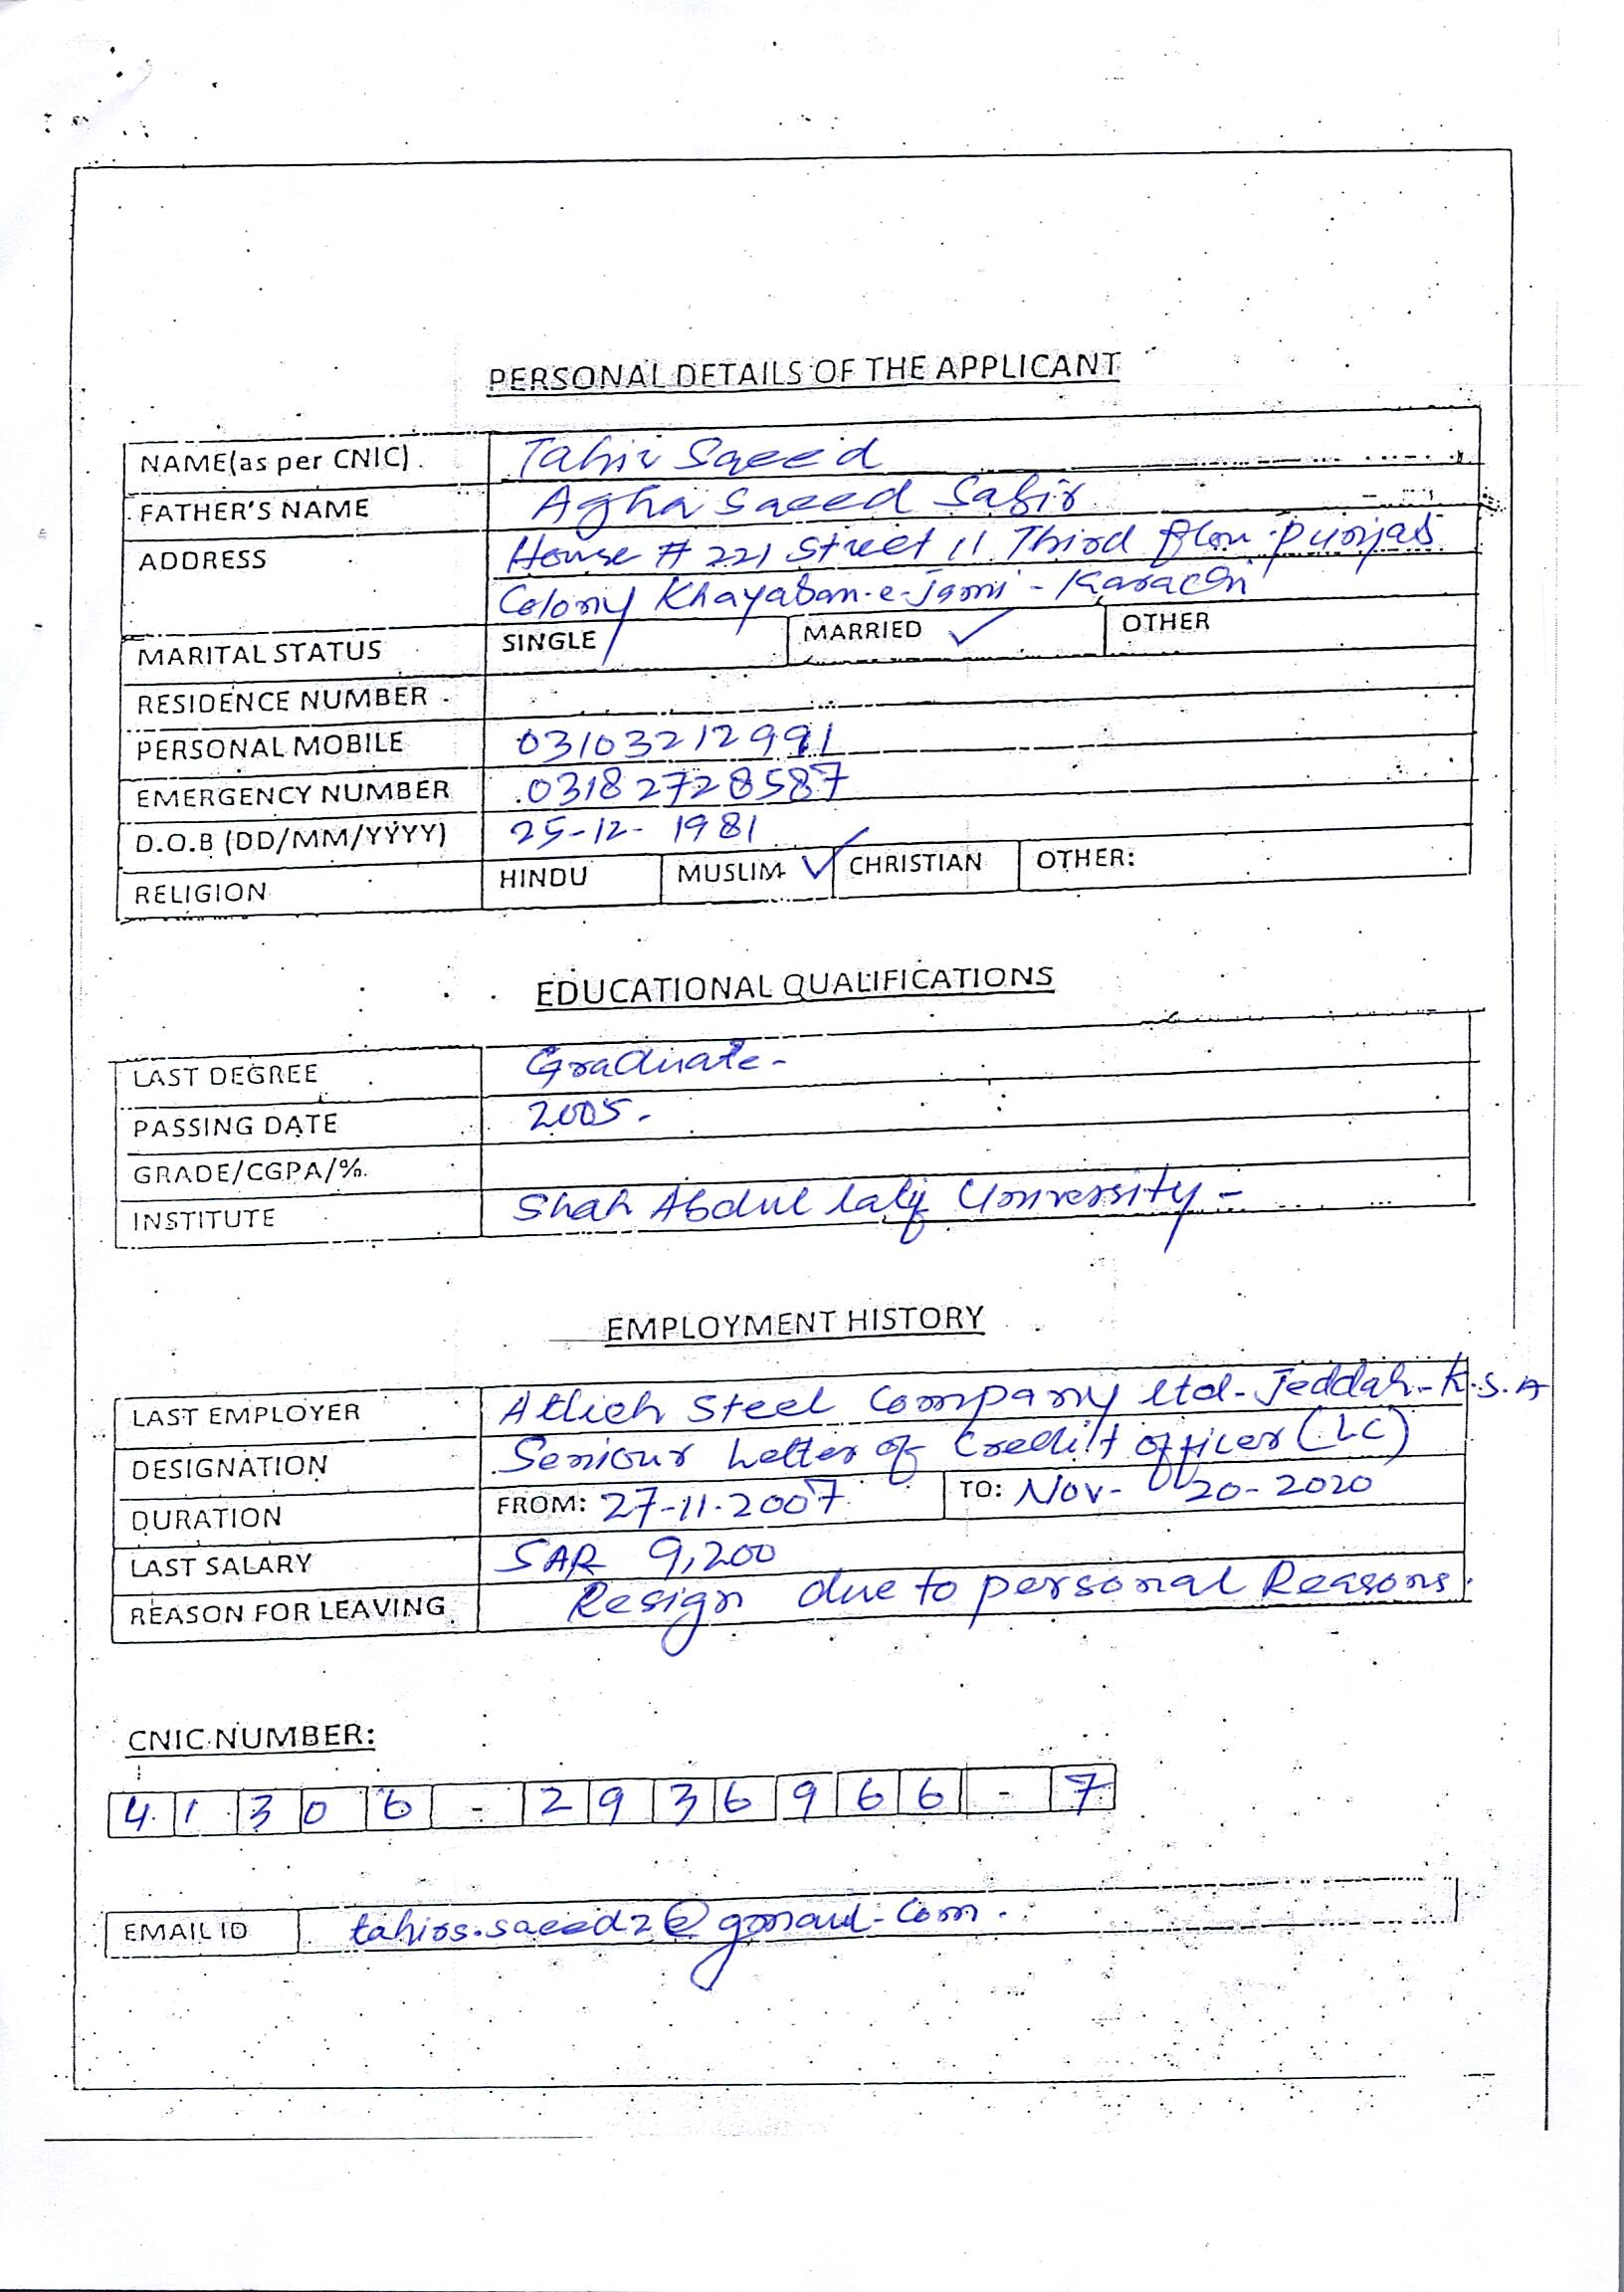 PERSONAL DETAILS OF THE APPLICANT
NAME(as per CNIC) Tahir Saeed
FATHER'S NAME Agha Saeed Sabir
ADDRESS House # 221 Street 11 Third floor Punjab
Colony Khayaban-e-Jami - Karachi
MARITAL STATUS SINGLE MARRIED ✓ OTHER
RESIDENCE NUMBER
PERSONAL MOBILE 03103212991
EMERGENCY NUMBER 03182728587
D.O.B (DD/MM/YYYY) 25-12-1981
RELIGION HINDU MUSLIM ✓ CHRISTIAN OTHER:
EDUCATIONAL QUALIFICATIONS
LAST DEGREE Graduate-
PASSING DATE 2005.
GRADE/CGPA/%
INSTITUTE Shah Abdul latif University -
EMPLOYMENT HISTORY
LAST EMPLOYER Steel Company ltd- Jeddah-K.S.A
DESIGNATION Seniour Letter of Credit officer (LC)
DURATION FROM: 27-11-2007 TO: Nov- 20-2020
LAST SALARY SAR 9,200
REASON FOR LEAVING Resign due to personal Reasons.
CNIC NUMBER:
41306-2936966-7
EMAIL ID